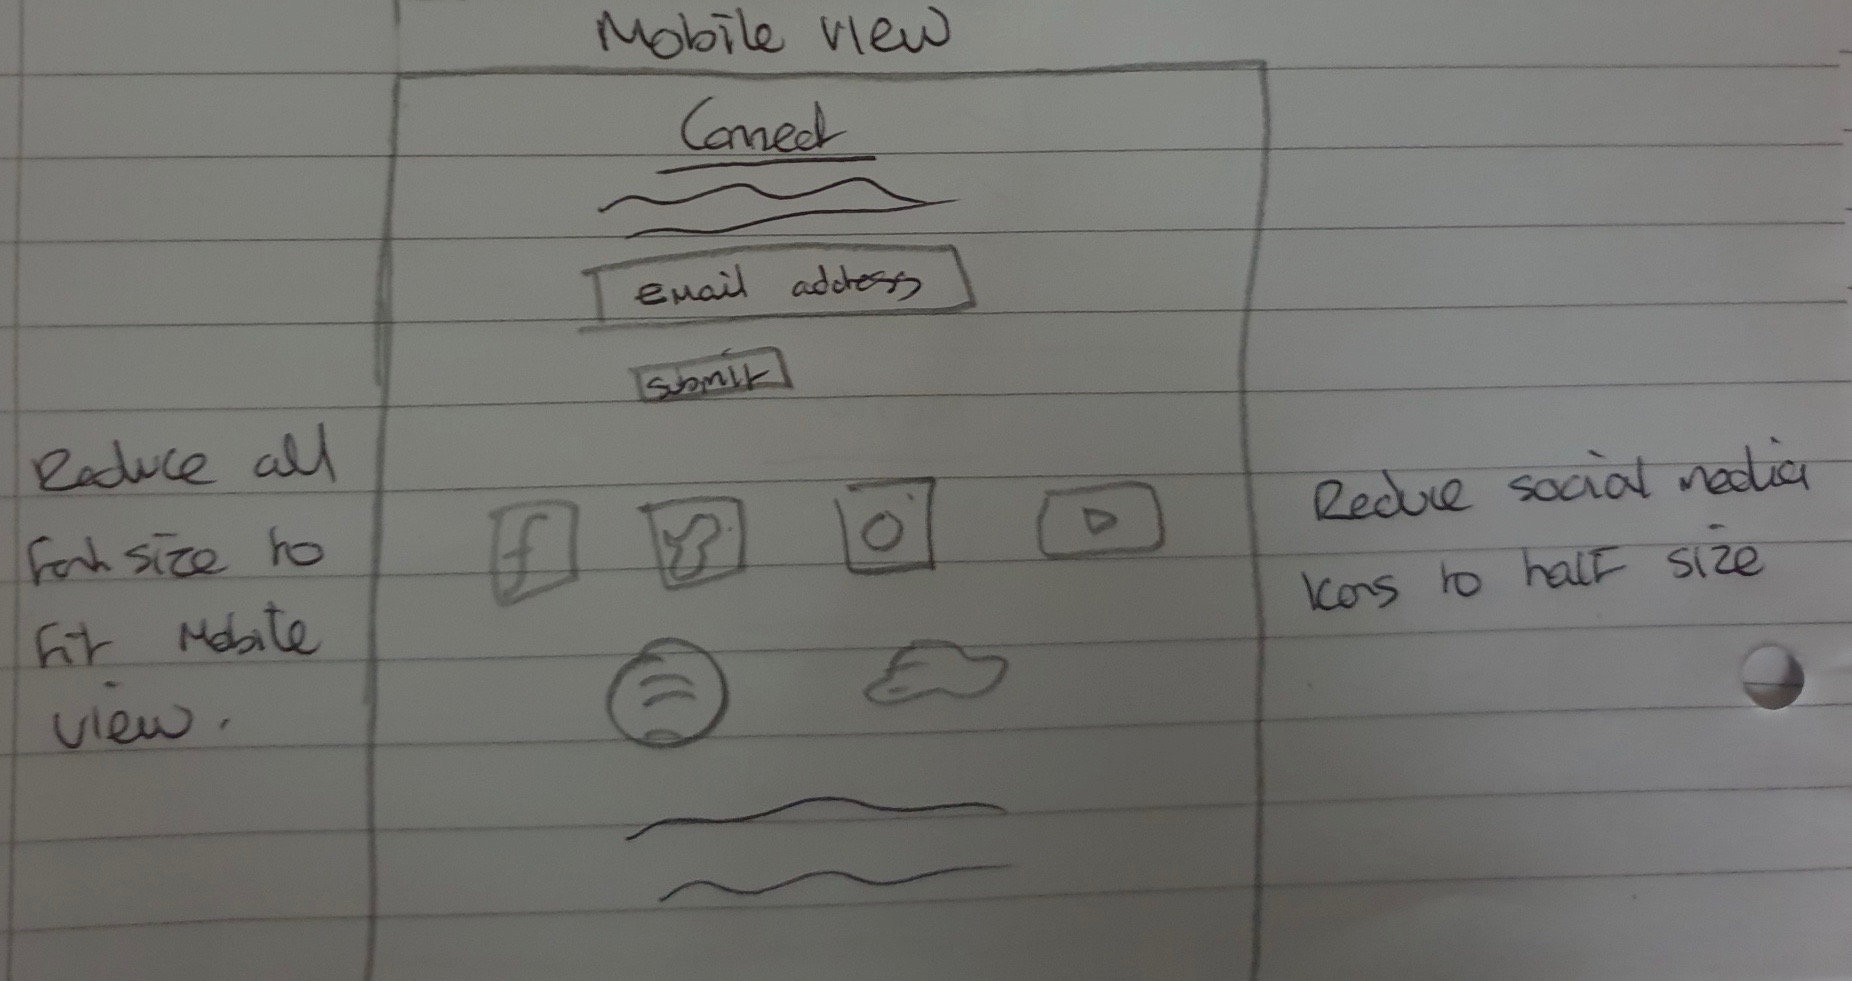 Mobile view
Connect
email address
submit
Reduce all
font size to
fit Mobile
view.
f
Reduce social media
Icons to half size